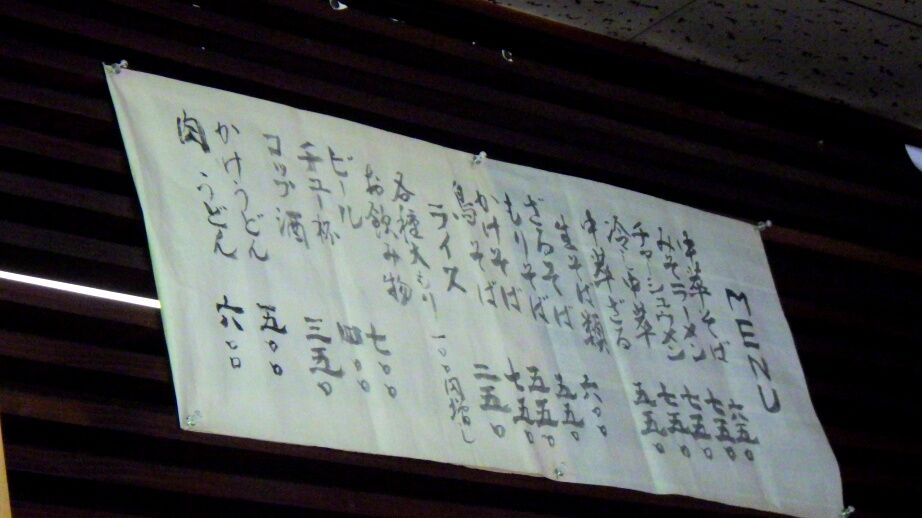 MENU
中華そば 六五〇
みそラーメン 七五〇
チャーシュウメン 七五〇
冷し中華 七五〇
中華ざる 五五〇
生そば
ざるそば 六〇〇
もりそば 五五〇
かけそば 五五〇
鳥そば 七五〇
ライス 二五〇
各種大もり 一〇〇円増し
お飲み物
ビール 七〇〇
チュー杯 四〇〇
コップ酒 三五〇
かけうどん 五〇〇
肉うどん 六〇〇